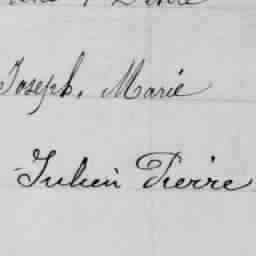 Joseph, Marie
Julien Pierre